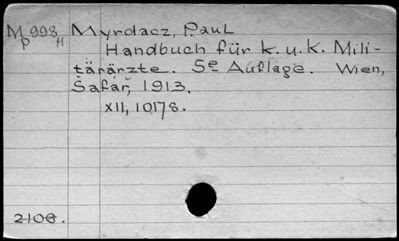 M 998 Myrdacz, Paul
P H
Handbuch für k. u. k. Mili-
tärärzte. 5e Auflage. Wien,
Šafář, 1913.
XII, 1017 S.
2108.